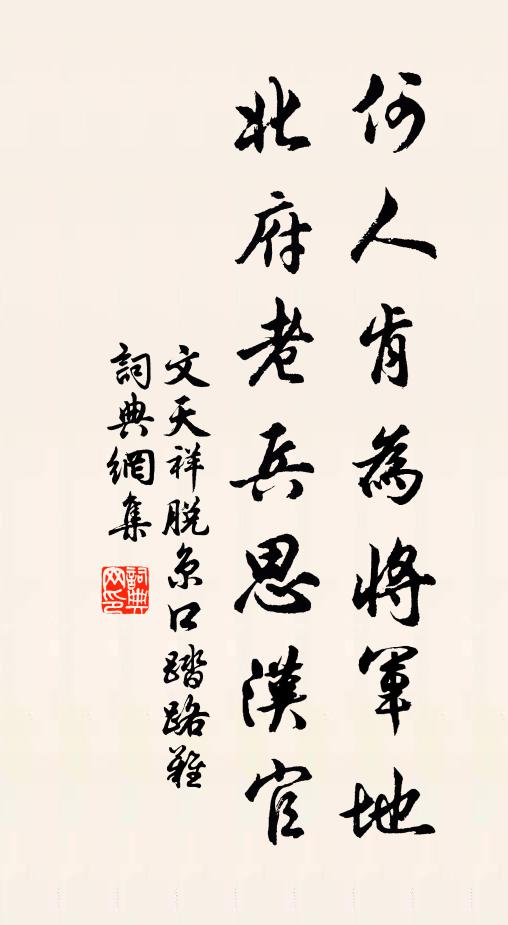 何人肯為將軍地
北府老兵思漢官
文天祥脫京口踏路難
詞典網集
詞典網印